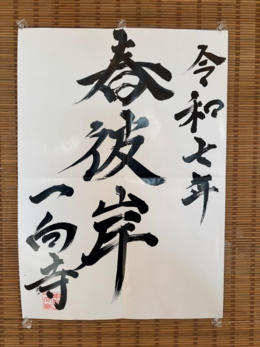 令和七年
春彼岸
一向寺